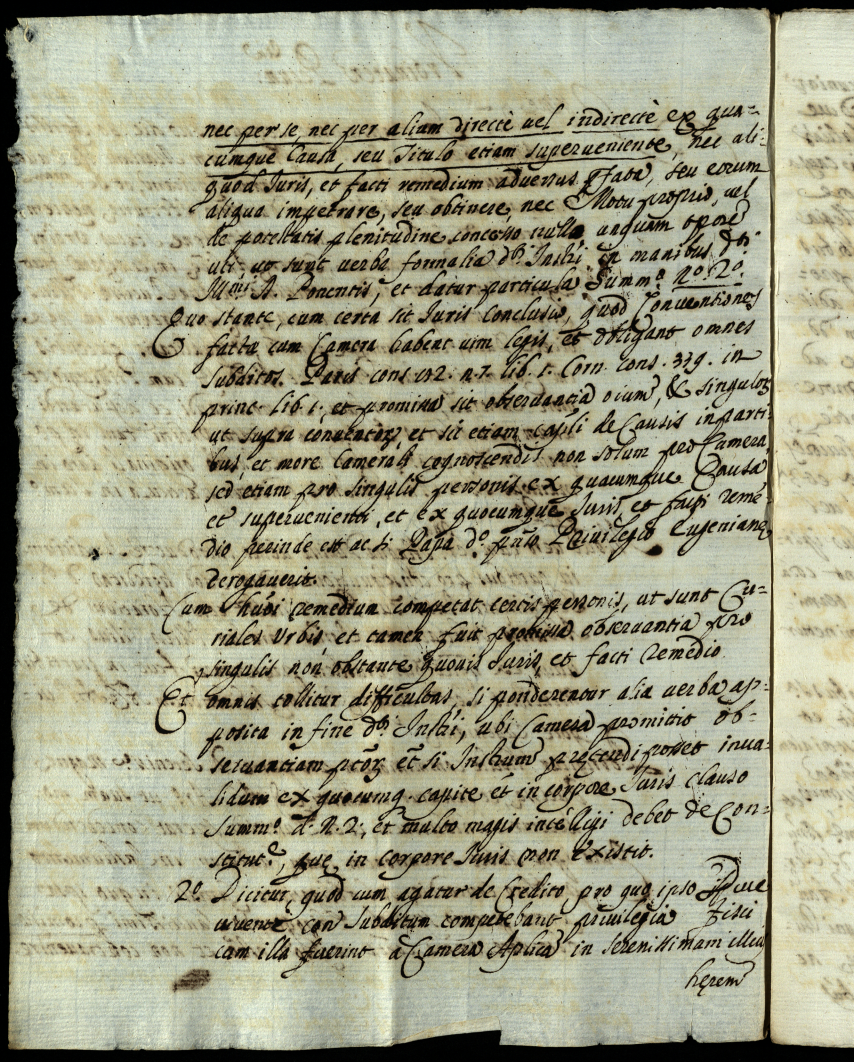 nec per se, nec per aliam directè uel indirectè ex qua-
cumque Causa, seu Titulo etiam superueniente, nec ali-
quod Iuris, et facti remedium aduersus seu eorum
aliqua impetrare, seu obtinere, nec Motu proprio, uel
de potestatis plenitudine concesso nullo unquam tpore
uti, ut sunt uerba formalia dⁱ Instrī in manibus dⁱ
A. Ponentis, et datur particula Summ.º nº 2º
Quo stante, cum certa sit Iuris Conclusio, quod Conuentiones
factæ cum Camera habent uim legis, et obligant omnes
subditos. Paris cons. n. 7. lib. 1. Corn. cons. 339. in
princ. lib. 1. et promissa sit obseruantia oium, & singulor
ut supra conuentor, et sit etiam de Causis in parti-
bus, et more Camerali cognoscendis non solum pro Camera,
sed etiam pro singulis personis ex quacumque Causa
et superuenienti, et ex quocumque Iuris, et facti reme-
dio perinde est ac si Papa dº Priuilegio Eugeniano
derogauerit.
Cum hmōi remedium competat certis personis, ut sunt Cu-
riales Urbis et tamen fuit promissa obseruantia pro
singulis non obstante quouis Iuris, et facti remedio
Et omnis tollitur difficultas, si ponderentur alia uerba ap-
posita in fine dⁱ Instrī, ubi Camera promittit ob-
seruantiam et si Instrum prętendi posset inua-
lidum ex quocumq. capite et in corpore Iuris clauso
Summ.º d. n. 2., et multo magis intelligi debet de Con-
stitut.ᵉ, quę in corpore Iuris non existit.
2º Dicitur, quod cum agatur de Credito pro quo ipso
con subditum competebant priuilegia Fisci
cum illa fuerint à Camera Aplica in Serenissimam illius
hęrem